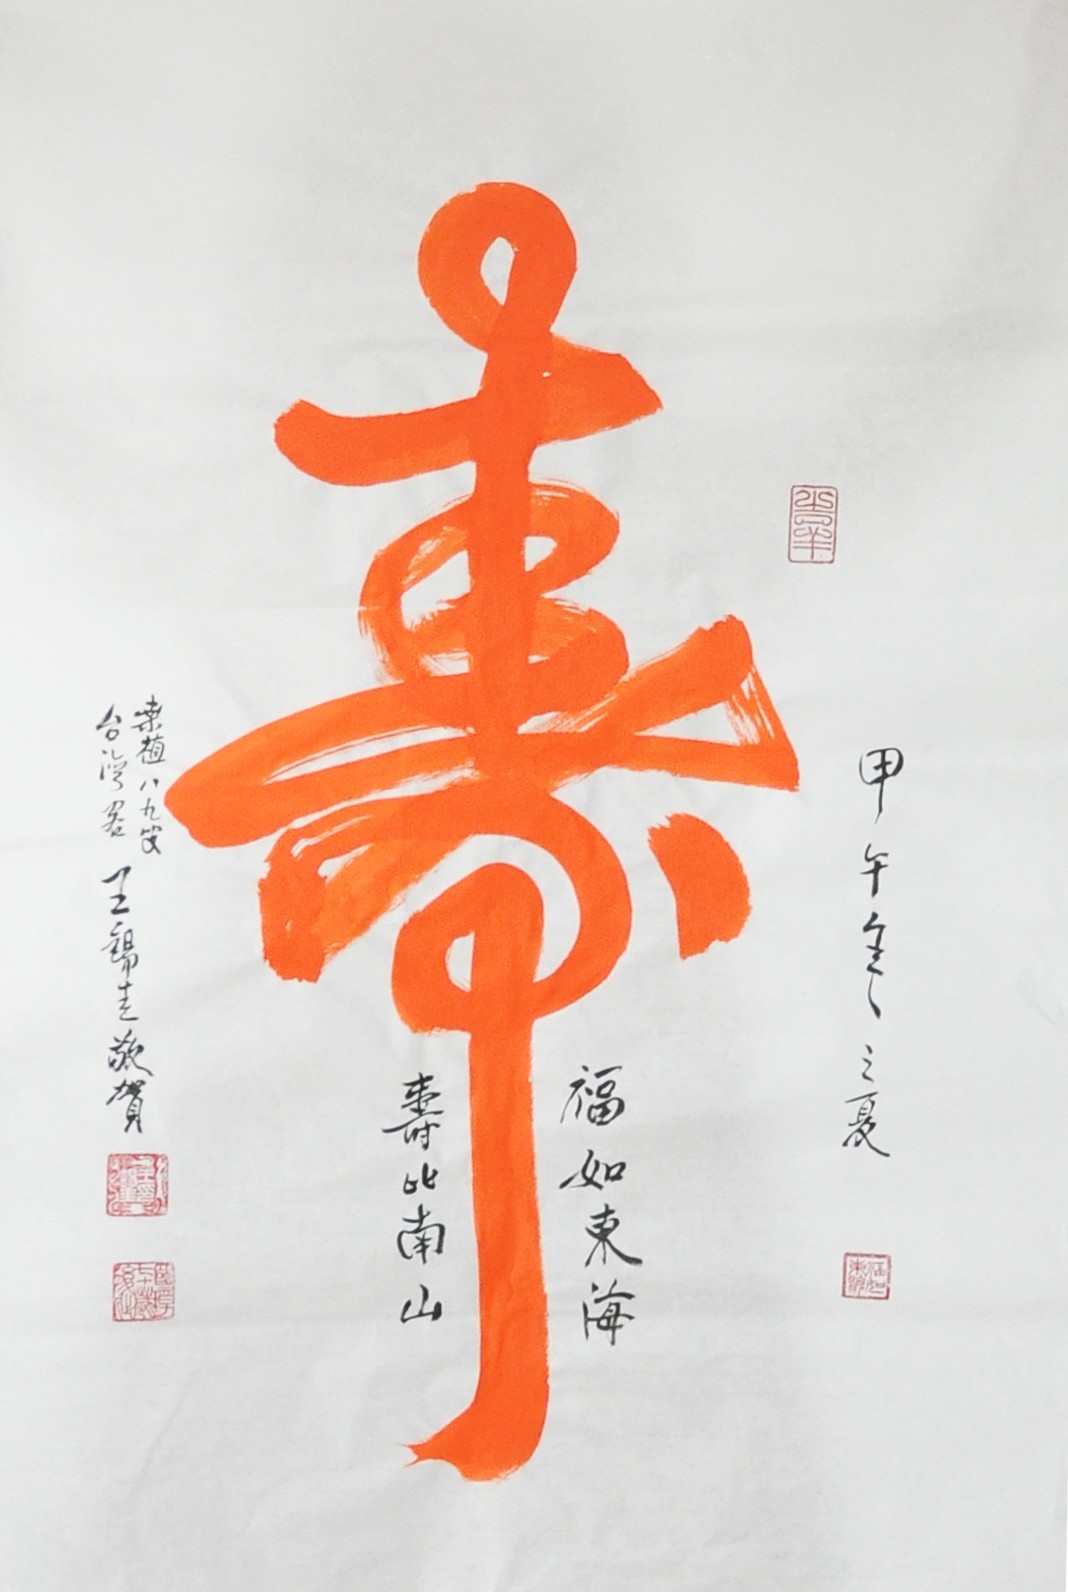 壽
甲午年之夏
福如東海
壽比南山
八九叟
台灣
王錫圭敬賀